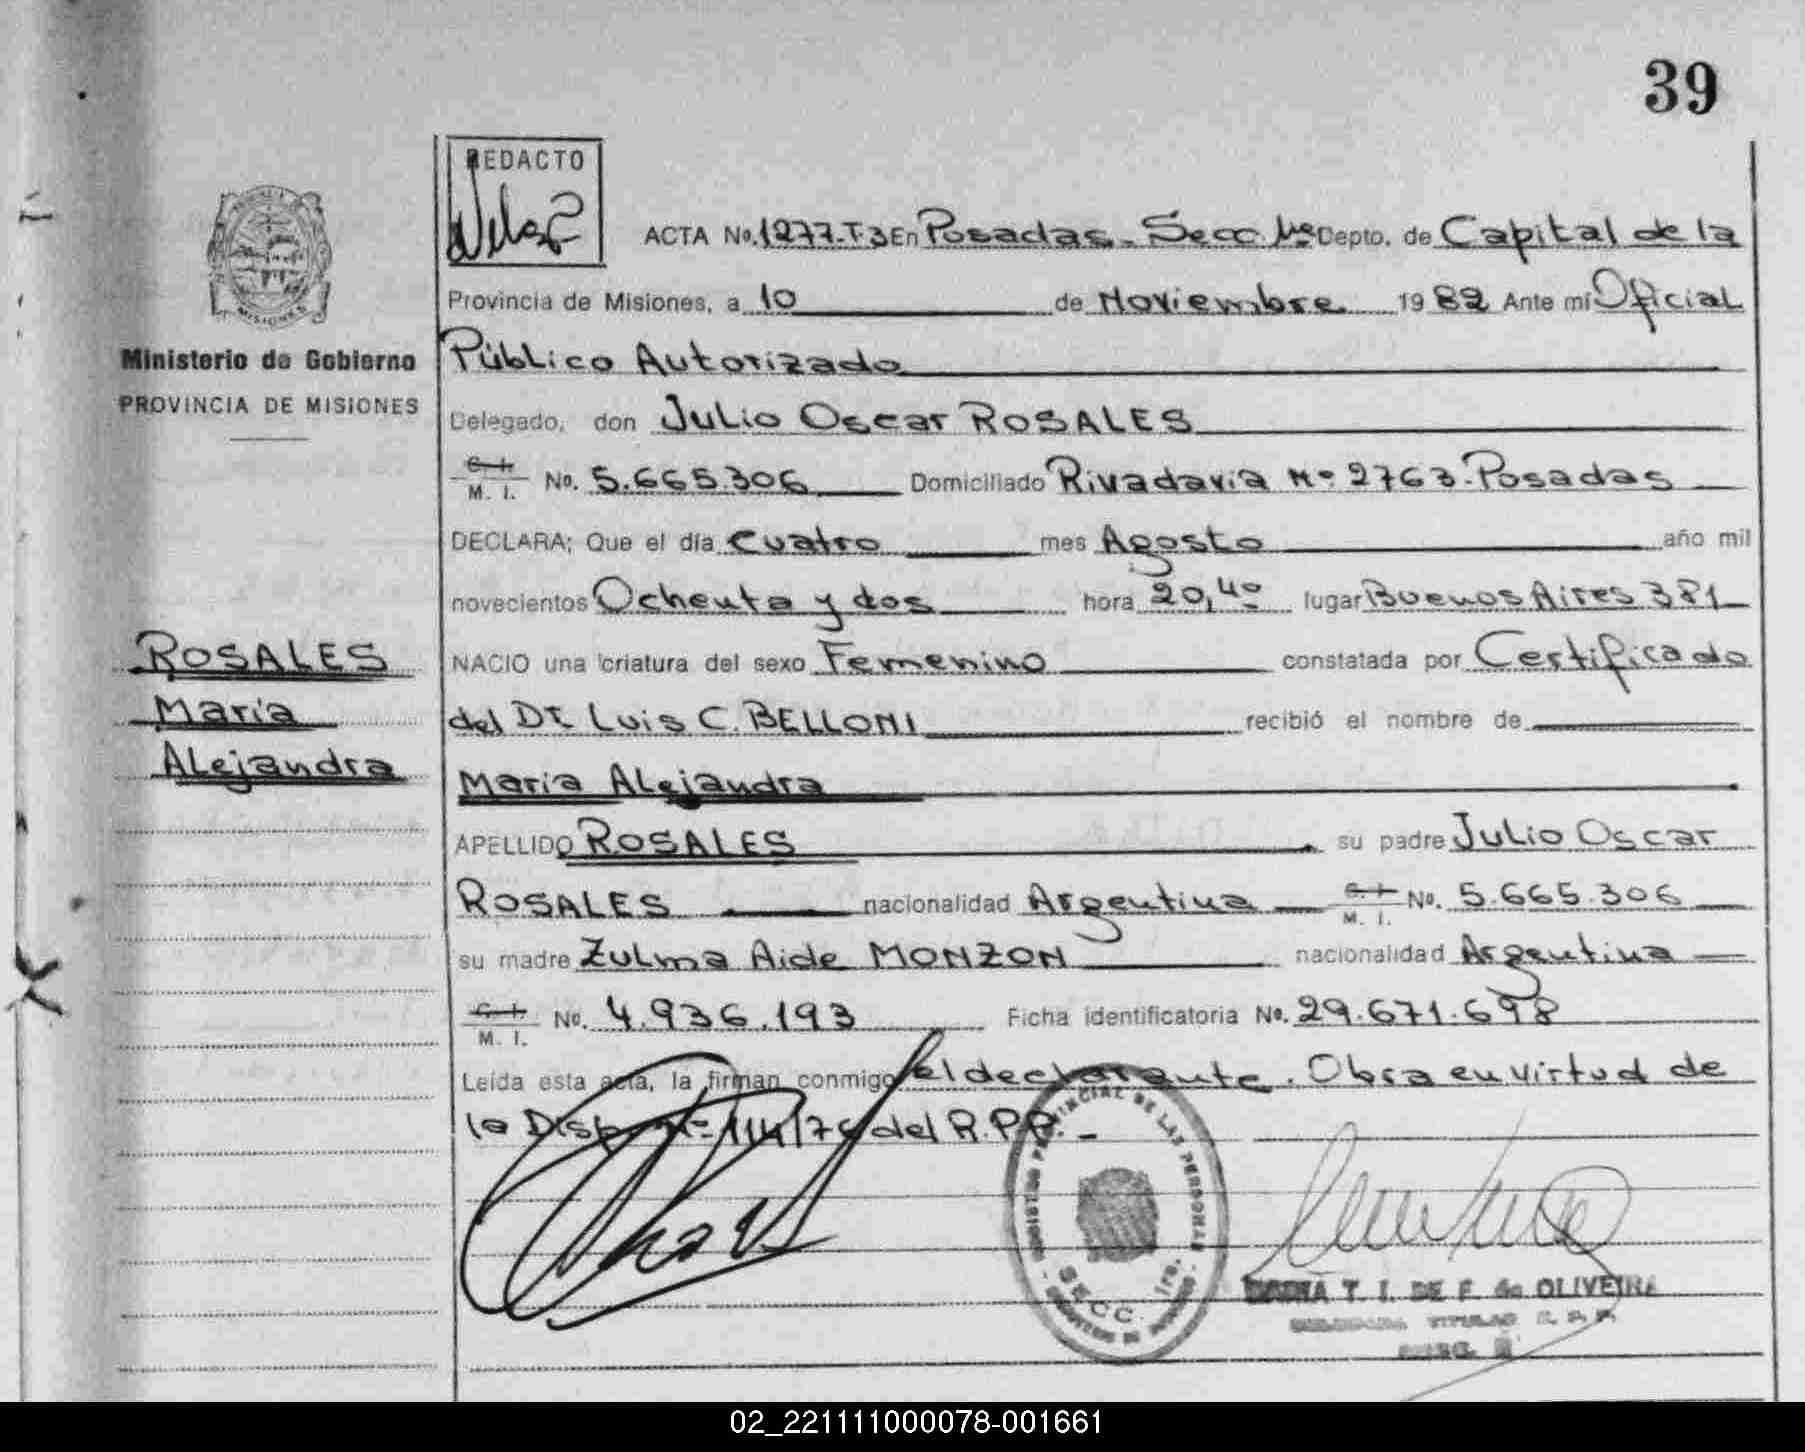 39
REDACTO
ACTA No. 1277-T3 En Posadas - Secc 1ra Depto. de Capital de la
Provincia de Misiones, a 10 de Noviembre 1982 Ante mí Oficial
MISIONES
Ministerio de Gobierno
PROVINCIA DE MISIONES
Público Autorizado
Delegado, don Julio Oscar ROSALES
C. I. M. I. No. 5.665.306 Domiciliado Rivadavia Nº 2763-Posadas
DECLARA; Que el día cuatro mes Agosto año mil
novecientos Ochenta y dos hora 20,40 lugar Buenos Aires 381
ROSALES
María
Alejandra
NACIO una criatura del sexo Femenino constatada por Certificado
del Dr Luis C. BELLONI recibió el nombre de
María Alejandra
APELLIDO ROSALES su padre Julio Oscar
ROSALES nacionalidad Argentina C. I. M. I. No. 5.665.306
su madre Zulma Aide MONZON nacionalidad Argentina
C. I. M. I. No. 4.936.193 Ficha identificatoria No. 29.671.698
Leída esta acta, la firman conmigo el declarante. Obra en virtud de
la Disp. Nº 114/76 del R.P.P. -
REGISTRO PROVINCIAL DE LAS PERSONAS
SECC. 1ra.
MARIA T. I. DE F. de OLIVEIRA
02_221111000078-001661